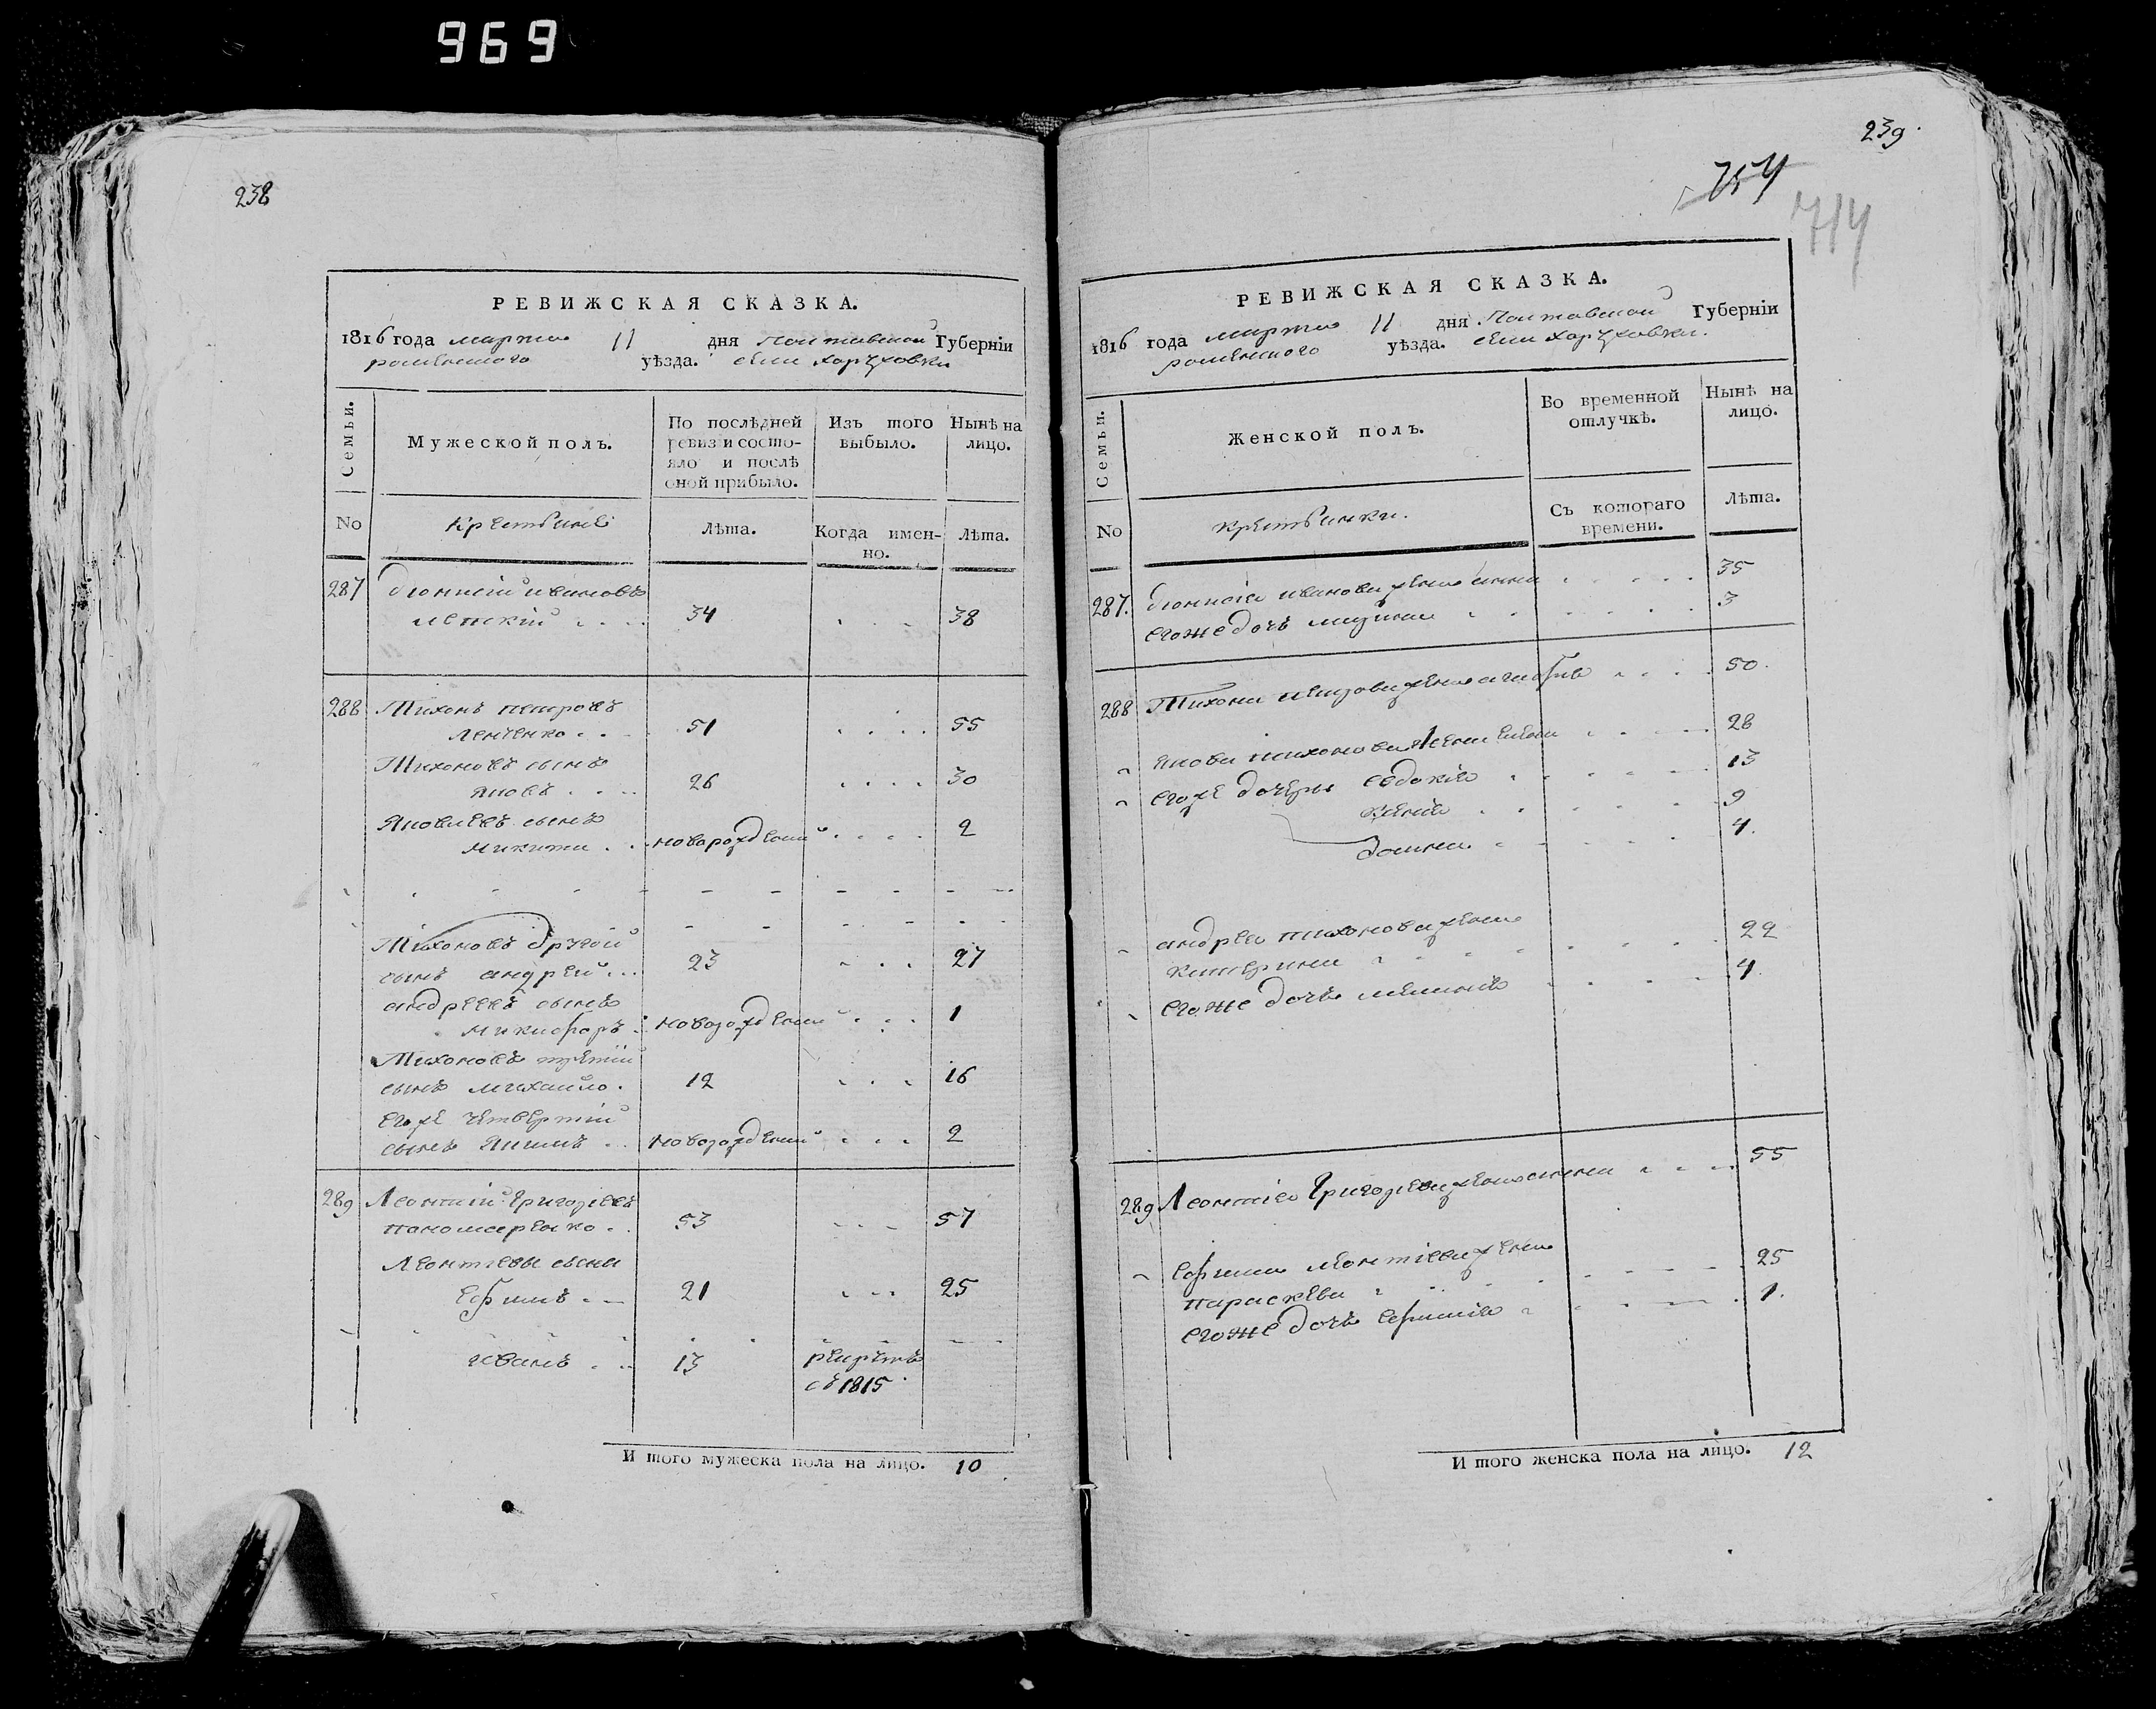 969
238
РЕВИЖСКАЯ СКАЗКА.
1816 года марта 11 дня Полтавской Губерніи
роменского уѣзда. села
Семьи.
Мужеской полъ.
По послѣдней ревизіи состояло и послѣ оной прибыло.
Изъ того выбыло.
Нынѣ на лицо.
No
Крестьяне
Лѣта.
Когда именно.
Лѣта.
287 Дионисий ивановъ
34 . . . 38
288 Тихонъ петровъ
Ленченко . . 51 . . . . 55
Тихоновъ сынъ
Яковъ . . . 26 . . . . 30
Яковлевъ сынъ
Микита . . новорождений . . . . 2
Тихоновъ другой
сынъ андрей . . . 23 . . . 27
андреевъ сынъ
Никифоръ . новорождений . . . 1
Тихоновъ третий
сынъ михайло . 12 . . . 16
егоже четвертий
сынъ Якимъ . . новорождений . . . 2
289 Леонтий Григориевъ
53 . . . 57
Леонтиевы сыни
Ефимъ . . 21 . . . 25
иванъ . . . 13 рекрутъ
съ 1815.
И того мужеска пола на лицо. 10
239.
754
714
РЕВИЖСКАЯ СКАЗКА.
1816 года марта 11 дня Полтавской Губерніи
роменского уѣзда. села
Семьи.
Женской полъ.
Во временной отлучкѣ.
Нынѣ на лицо.
No
крестьянки.
Съ котораго времени.
Лѣта.
287. Дионисіа иванова жена анна . . . . . 35
егоже дочь марина . . . . . . 3
288 Тихона петрова жена агафия . . . . 50.
Якова тихонова жена . . . . . 28
егоже дочери евдокія . . . . . . 13
ксенія . . . . . . 9
домна . . . . . 4.
андрея тихонова жена
катерина . . . . . . . 22
егоже дочь . . . . 4.
289 Леонтіа Григориева жена анна . . . . 55
ефима леонтіева жена
параскева . . . . . . . 25
егоже дочь ефимія . . . . . 1.
И того женска пола на лицо. 12